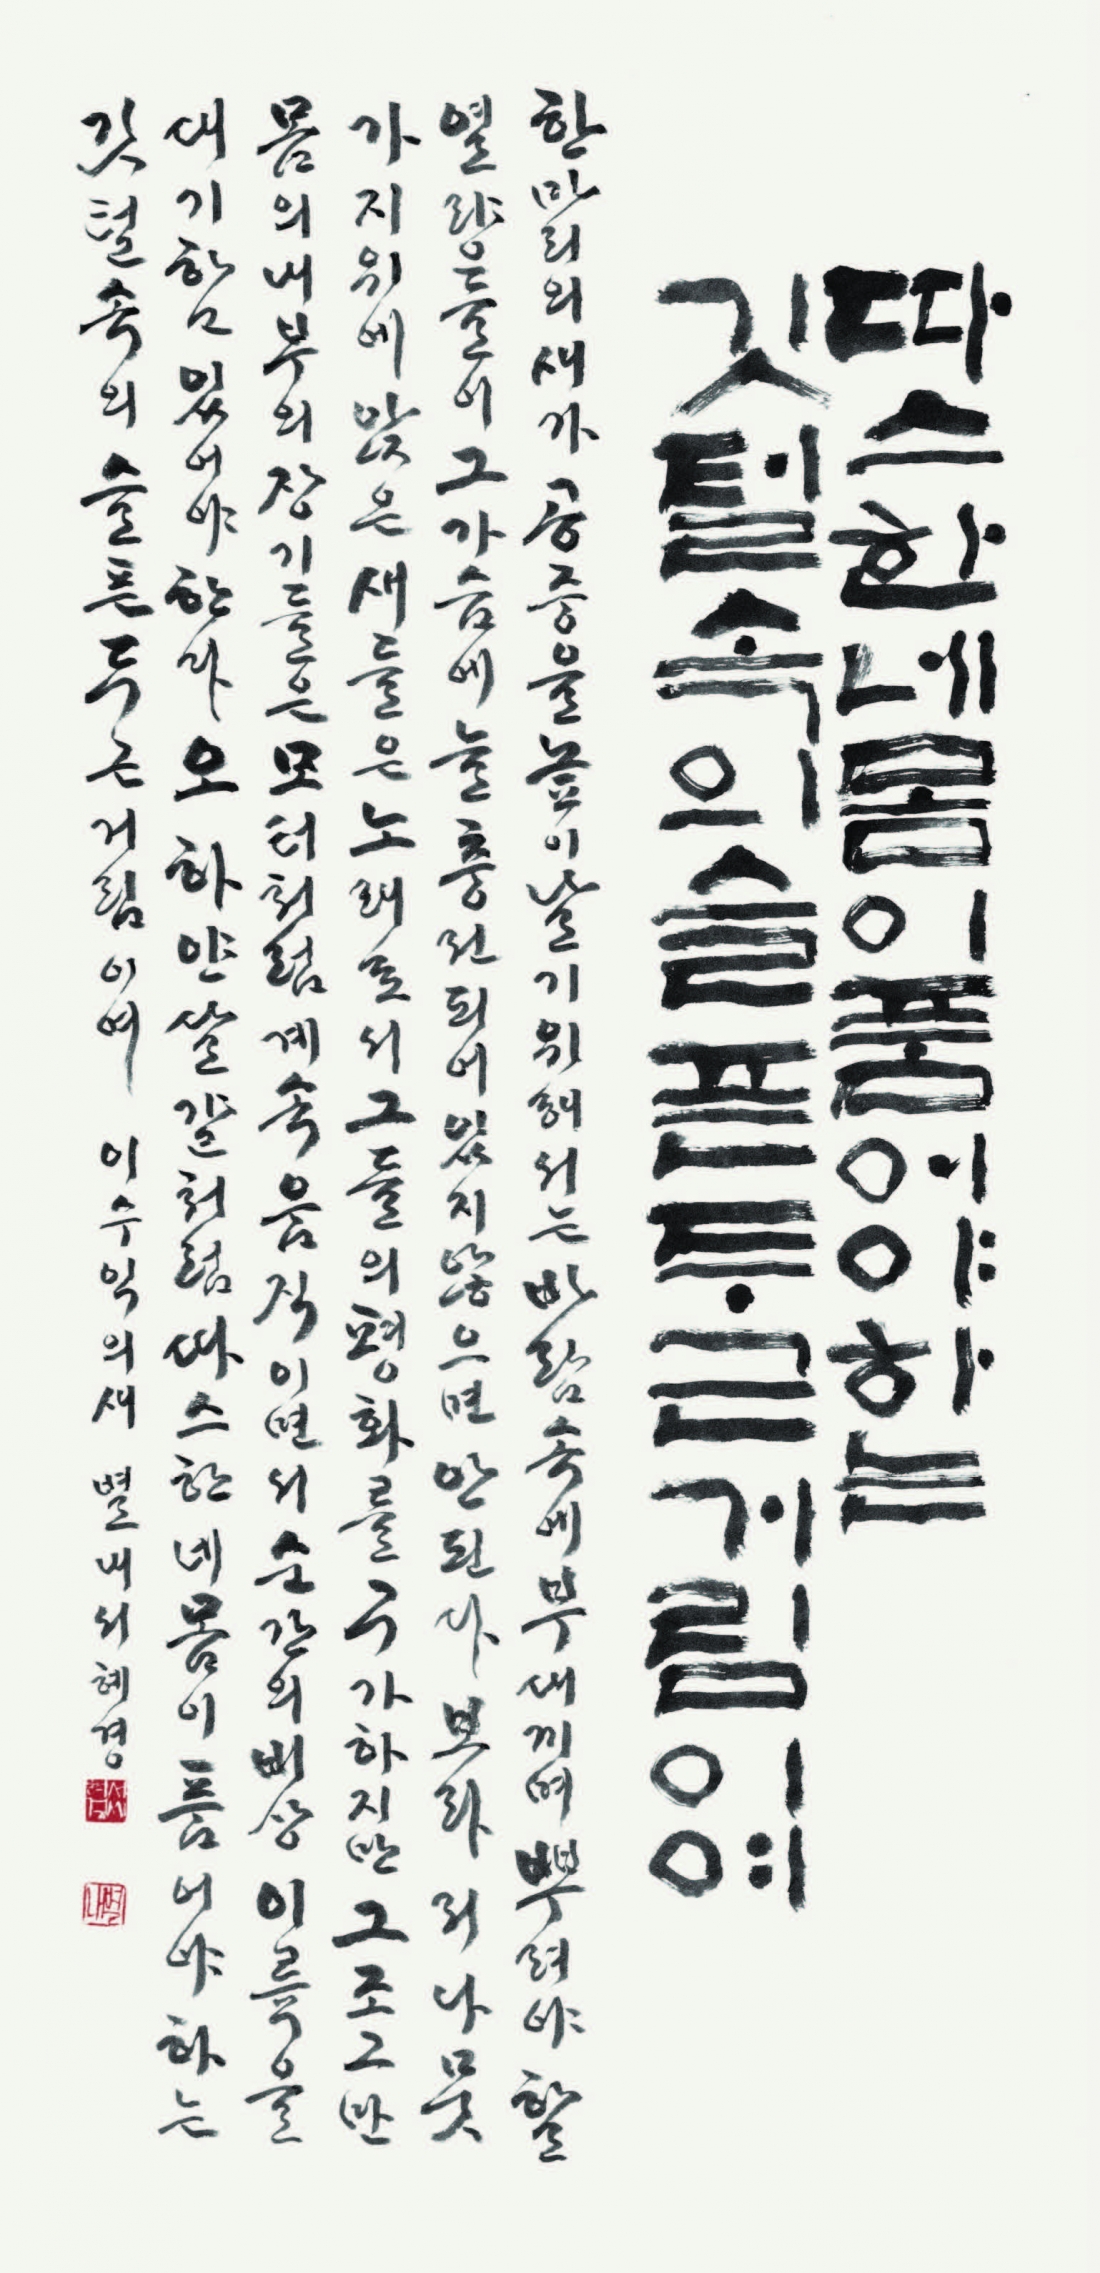 따스한네몸이품어야하는
깃털속의슬픈두근거림이여
한마리의새가공중을높이날기위해서는바람속에부대끼며뿌려야할
열량들이그가슴에늘충전되어있지않으면안된다보라 나뭇
가지위에앉은새들은노래로서그들의평화를구가하지만그조그만
몸의내부의장기들은모터처럼계속움직이면서순간의비상이륙을
대기 있어야한다오하얀달걀처럼따스한네몸이품어야하는
깃털속의슬픈두근거림이여 이수익의새 별내서혜경
별내